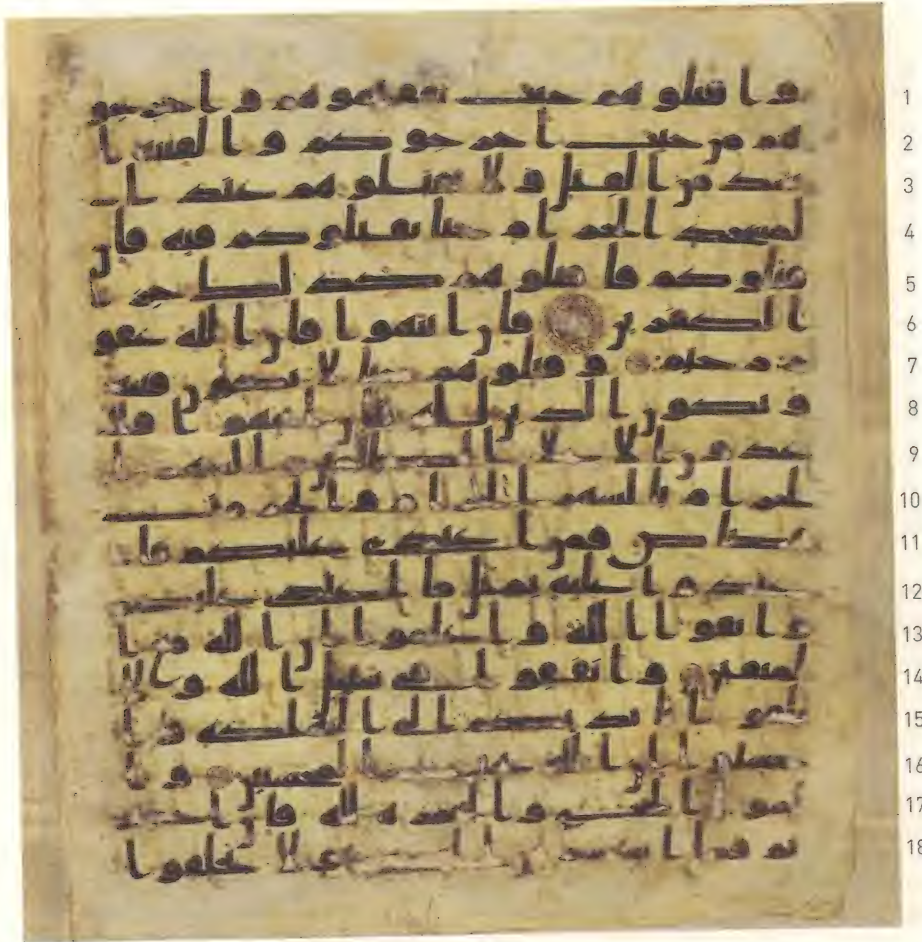 واقتلوهم حيث ثقفتموهم واخرجو 1
هم من حيث اخرجوكم والفتنة ا 2
شد من القتل ولا تقتلوهم عند ا 3
لمسجد الحرام حتا يقتلوكم فيه فان 4
قتلوكم فاقتلوهم كذلك جز 5
ا الكفرين فان انتهوا فان الله غفو 6
ر رحيم وقتلوهم حتا لا تكون فتنة 7
ويكون الدين لله فان انتهوا فلا 8
عدون الا على الظلمين الشهر ا 9
لحرام بالشهر الحرام والحرمت 10
قصاص فمن اعتدى عليكم فا 11
عتدوا عليه بمثل ما اعتدى عليكم 12
واتقوا الله واعلموا ان الله مع ا 13
لمتقين وانفقوا في سبيل الله ولا 14
تلقوا بايديكم الى التهلكة وا 15
حسنوا ان الله يحب المحسنين وا 16
تموا الحج والعمرة لله فان احصر 17
تم فما استيسر من الهدي ولا تحلقوا 18